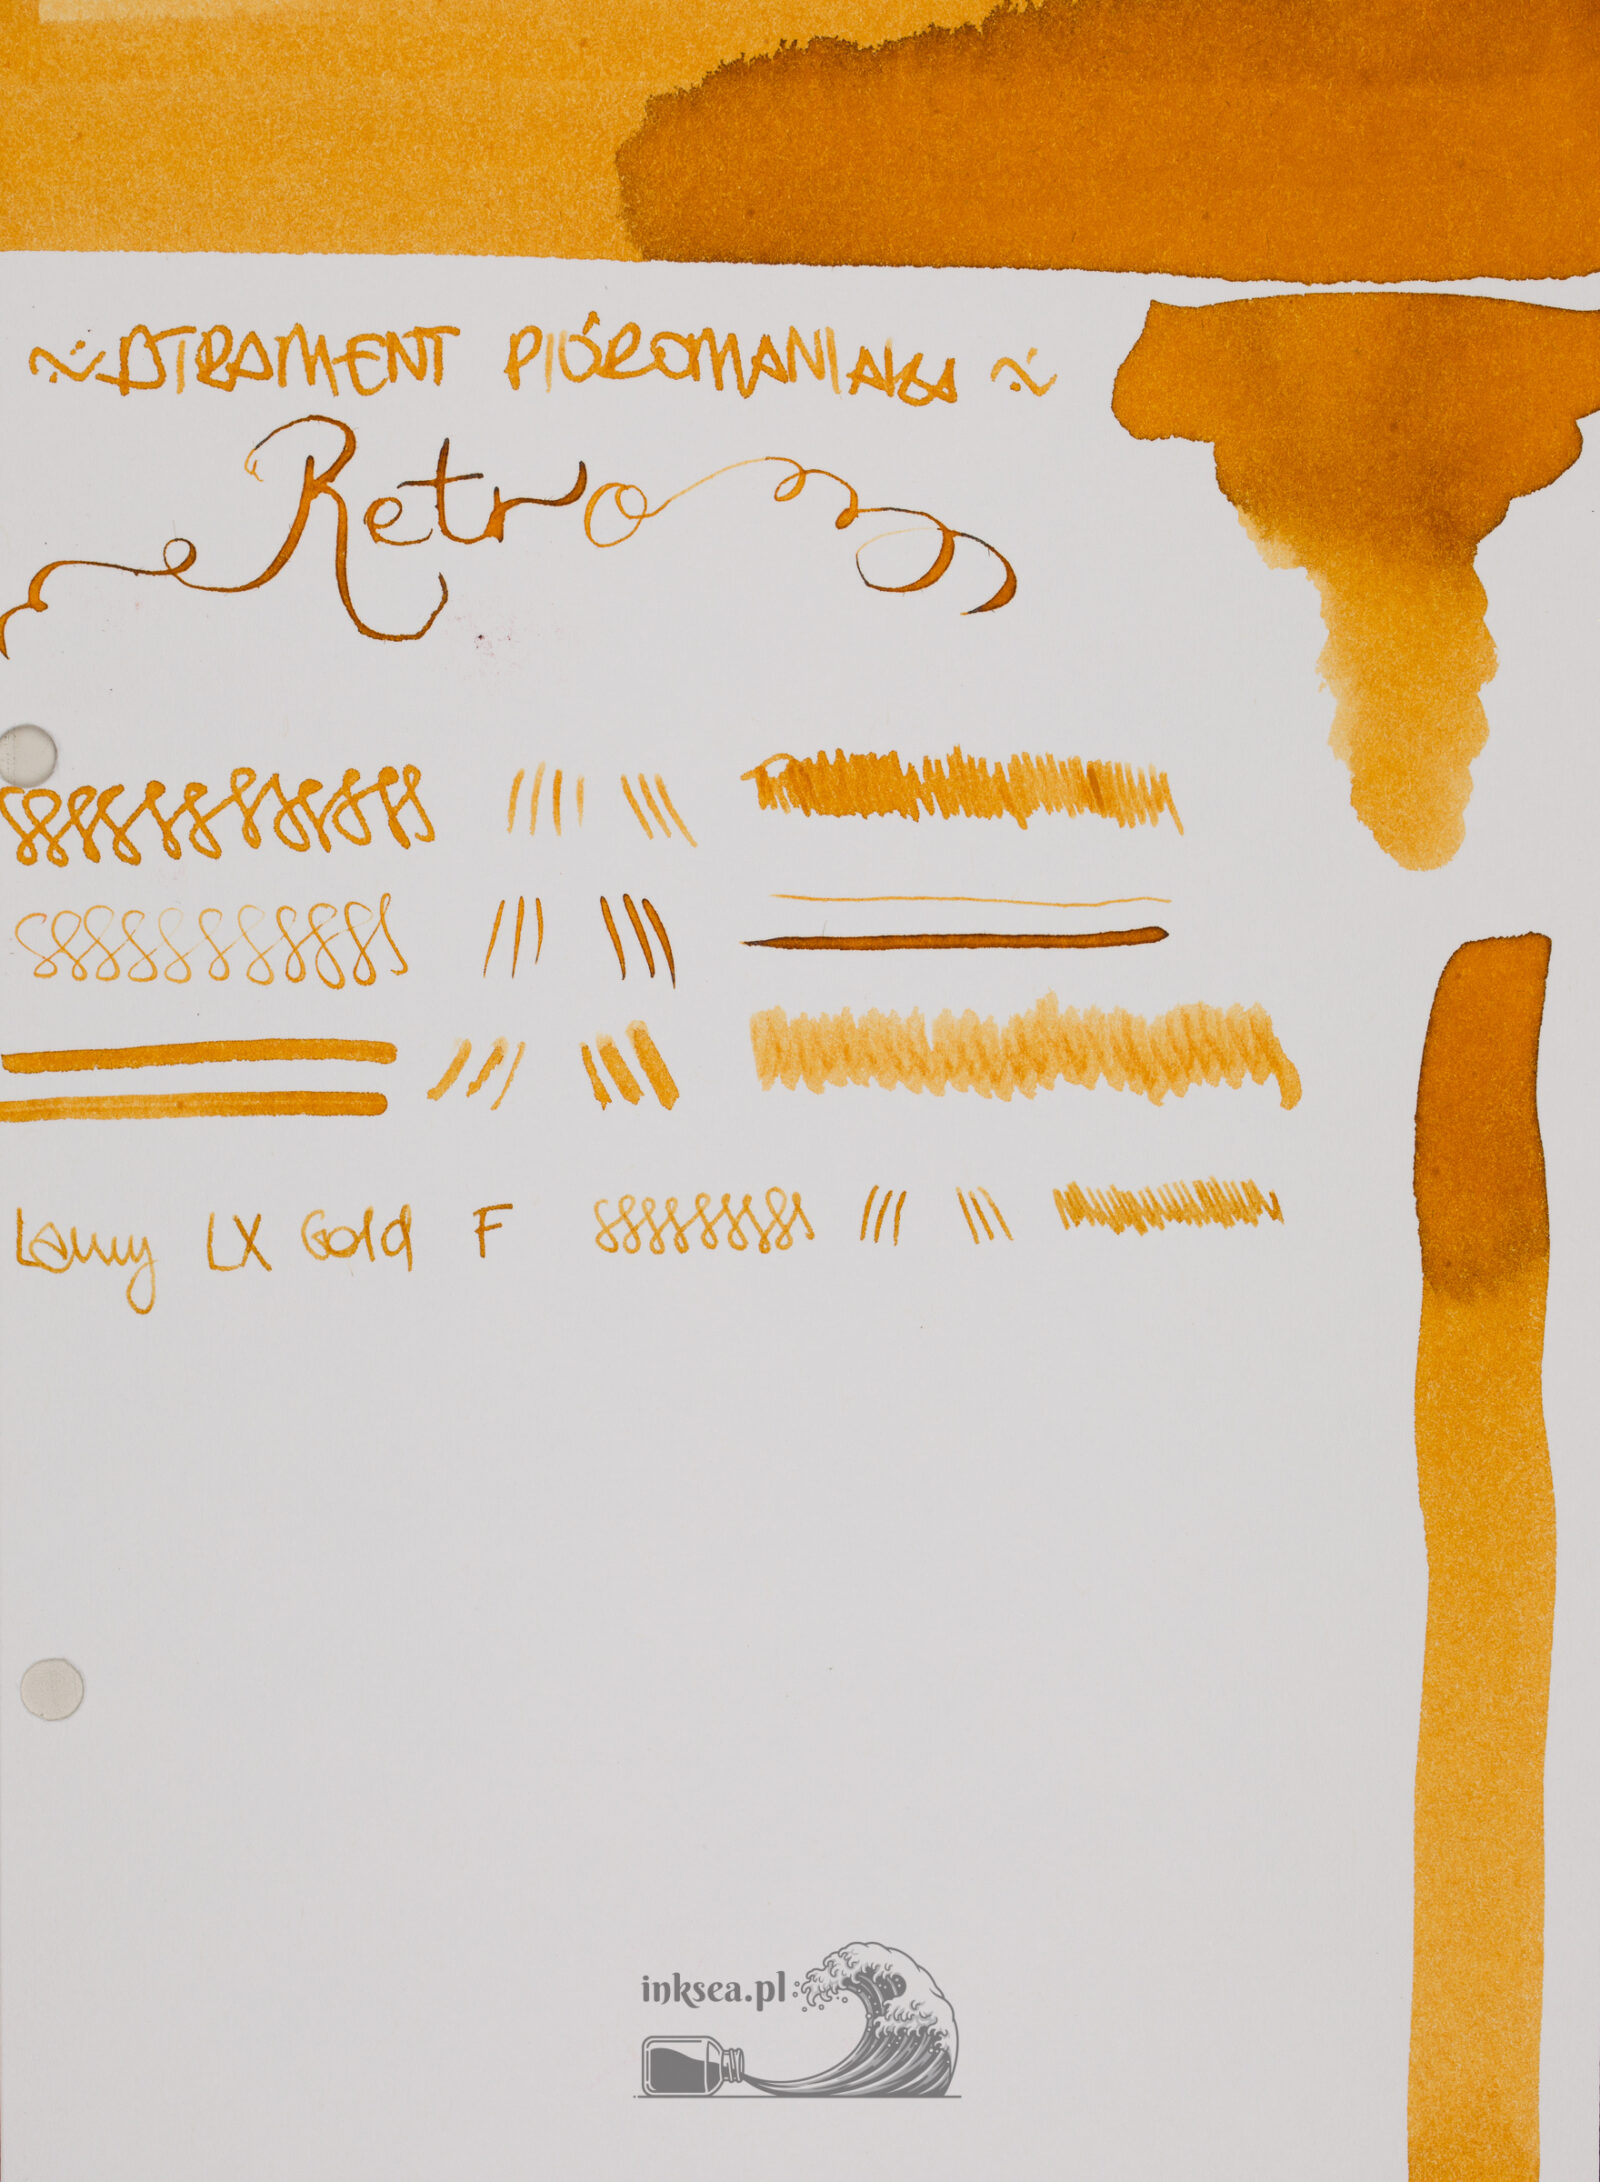 ~ ATRAMENT PIÓROMANIAKA ~
Retro
Lamy LX Gold F
inksea.pl